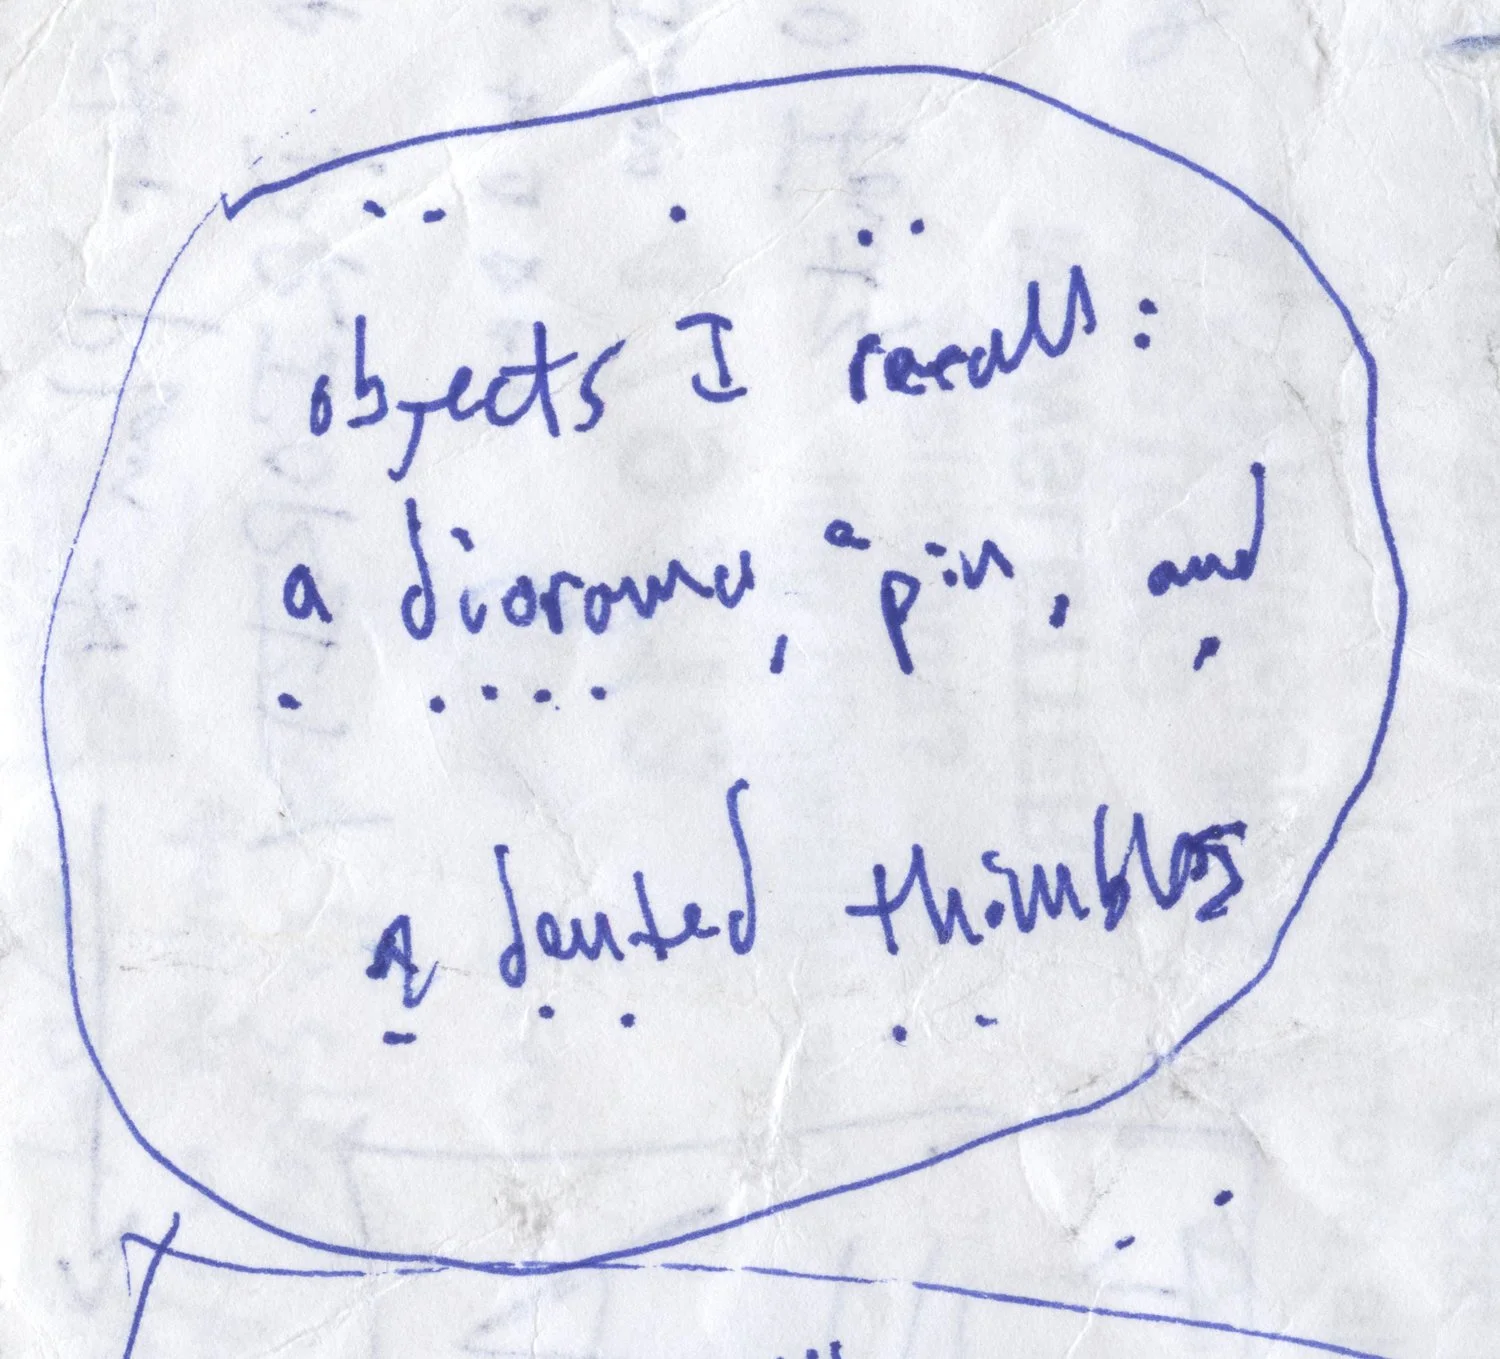 objects I recall:
a diorama, a pin, and
a dented thimble